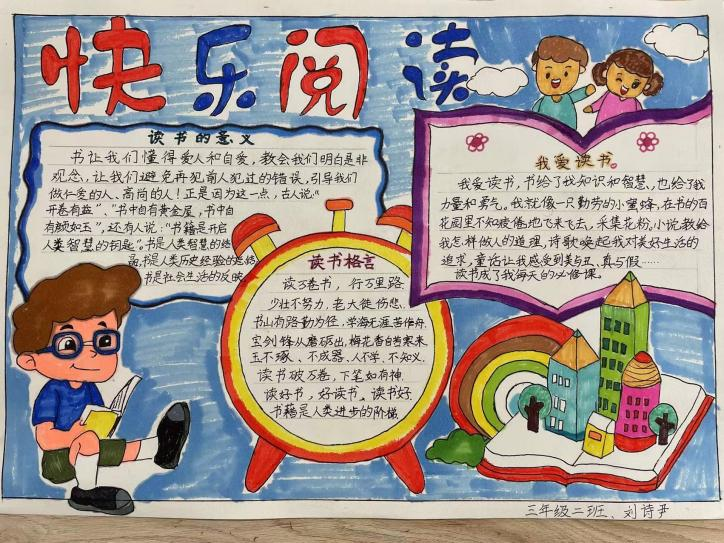 快乐阅读
读书的意义
书让我们懂得爱人和自爱，教会我们明白是非
观念，让我们避免再犯前人犯过的错误，引导我们
做仁爱的人、高尚的人！正是因为这一点，古人说：“
开卷有益”、“书中自有黄金屋，书中自
有颜如玉”，还有人说：“书籍是开启
人类智慧的钥匙”。书是人类智慧的结
晶，书是人类历史经验的总结
书是社会生活的反映
我爱读书。
我爱读书，书给了我知识和智慧，也给了我
力量和勇气。我就像一只勤劳的小蜜蜂，在书的百
花园里不知疲倦地飞来飞去，采集花粉。小说教给
我怎样做人的道理，诗歌唤起我对美好生活的
追求，童话让我感受到美与丑、真与假……
读书成了我每天的必修课。
读书格言
读万卷书，行万里路
少壮不努力，老大徒伤悲
书山有路勤为径，学海无涯苦作舟
宝剑锋从磨砺出，梅花香自苦寒来
玉不琢、不成器，人不学，不知义
读书破万卷，下笔如有神
读好书，好读书，读书好
书籍是人类进步的阶梯
三年级二班、刘诗尹